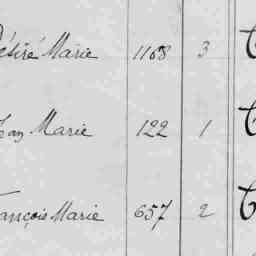 Désiré Marie 1168 3
Jean Marie 122 1
François Marie 657 2